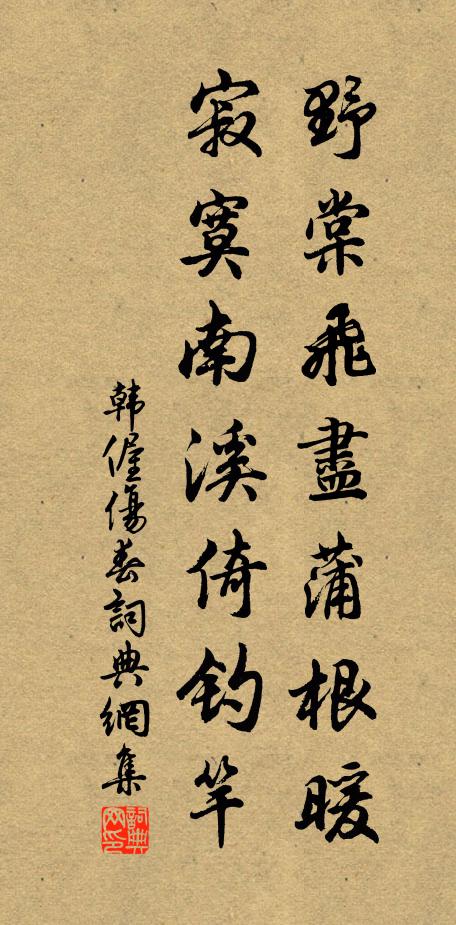 野棠飛盡蒲根暖
寂寞南溪倚釣竿
韩偓傷春詞典網集
詞典網印